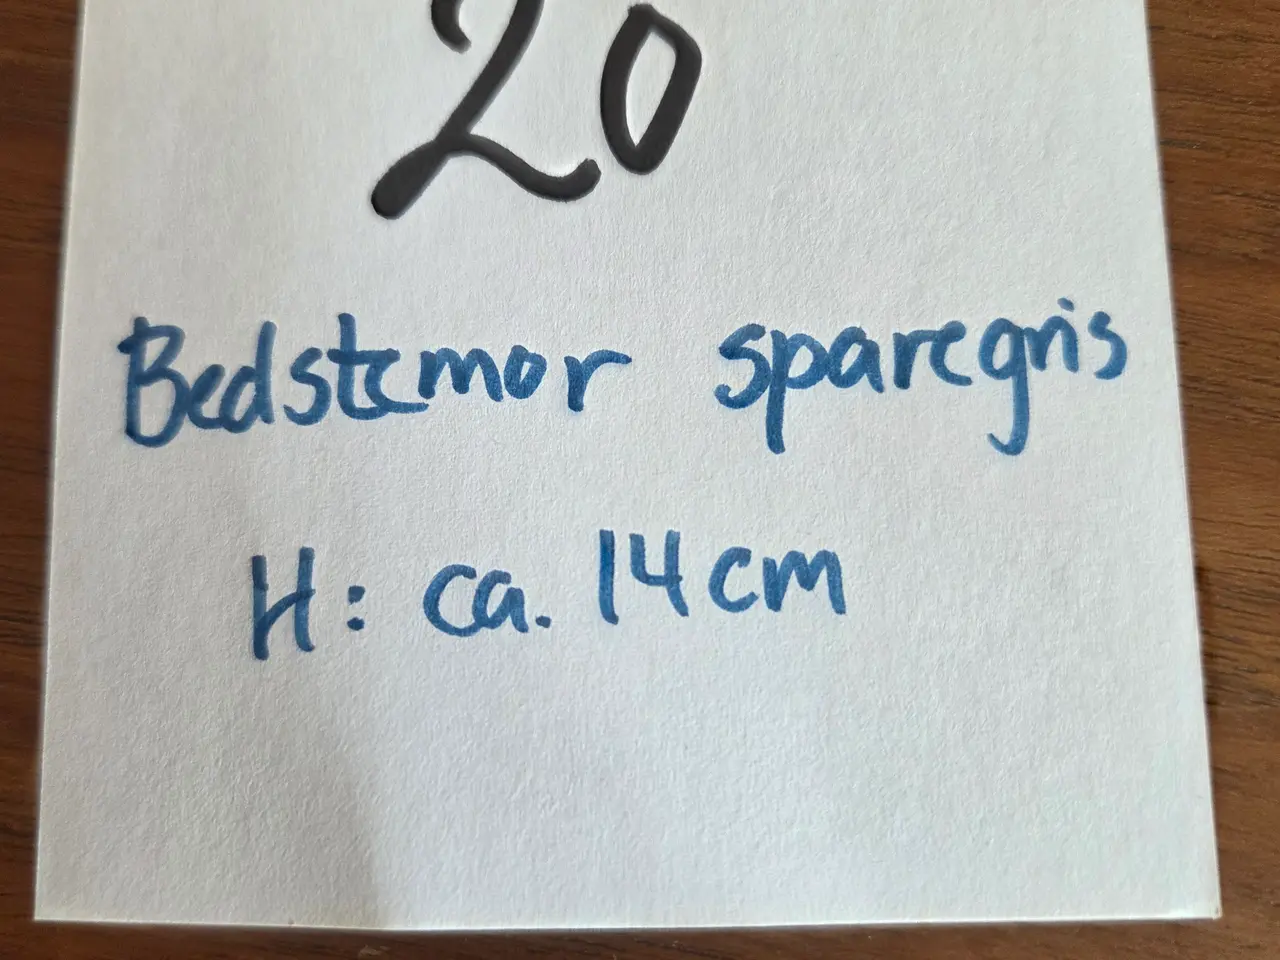 20
Bedstemor sparegris
H: ca. 14 cm